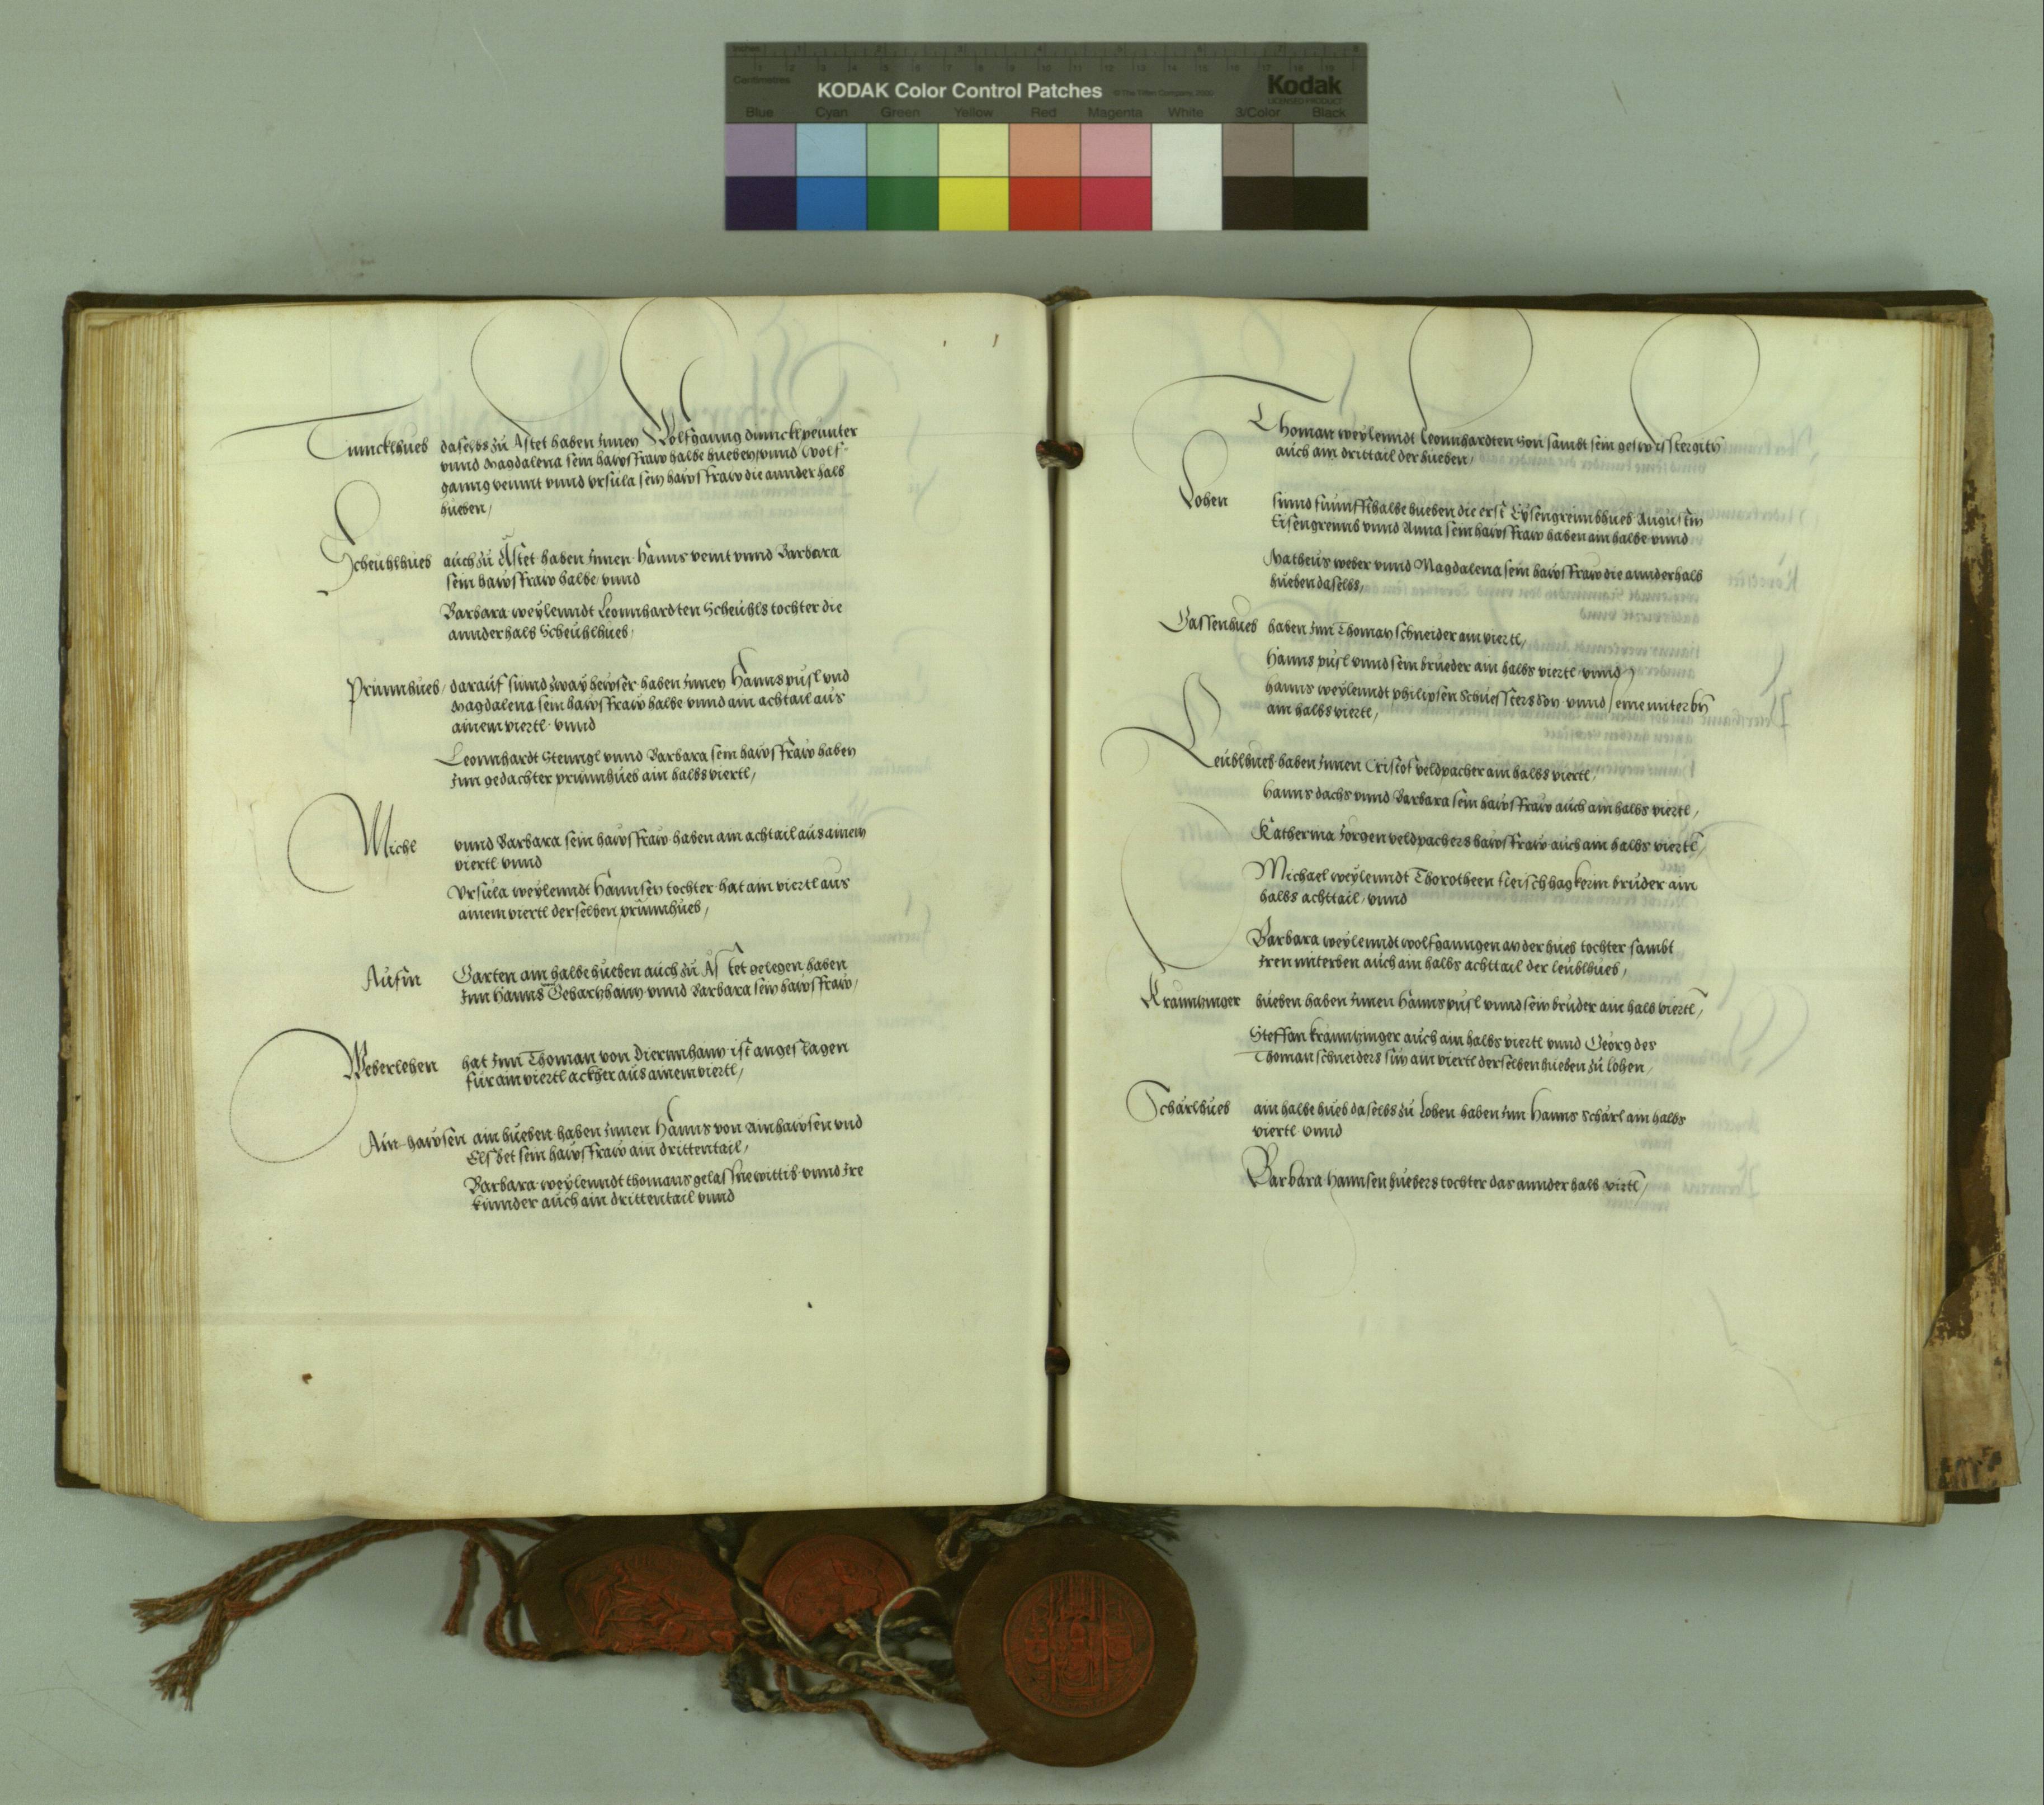 Inches 1 2 3 4 5 6 7 8
Centimetres 1 2 3 4 5 6 7 8 9 10 11 12 13 14 15 16 17 18 19
KODAK Color Control Patches © The Tiffen Company, 2000 Kodak
LICENSED PRODUCT
Blue Cyan Green Yellow Red Magenta White 3/Color Black
Tunncklhueb daselbs zu Astet haben Innen Wolfganng dunncklpeunter
vnnd Magdalena sein hawsfraw halbe hueben, vnnd Wolf-
ganng vennt vnnd vrsula sein hawsfraw die annder halb
hueben,
Scheuhlhueb auch zu Astet haben Innen Hanns vennt vnnd Barbara
sein hawsfraw halbe vnnd
Barbara weylenndt Leonnhardten Scheuhls tochter die
annder halb Scheuhlhueb,
Prunnhueb, darauf sinnd zway hewser haben Innen Hanns pusl vnd
Magdalena sein hawsfraw halbe vnnd ain achtail aus
ainem viertl vnnd
Leonnhardt Stenngl vnnd Barbara sein hawsfraw haben
Inn gedachter prunnhueb ain halbs viertl,
Michl vnnd Barbara sein hawsfraw haben ain achtail aus ainem
viertl vnnd
Vrsula weylenndt Hannsen tochter hat ain viertl aus
ainem viertl derselben prunnhueb,
Aufm Garten ain halbe hueben auch zu Astet gelegen haben
Inn Hanns Gebarzhann vnnd Barbara sein hawsfraw,
Weberlehen hat Inn Thoman von diernnhann ist angeslagen
fur ain viertl ackher aus ainem viertl,
Ain-hawsen ain hueben haben Innen Hanns von ainhawsen vnd
Elsbet sein hawsfraw ain drittentail,
Barbara weylenndt thomans gelassne wittib vnnd Ire
kinnder auch ain drittentail vnnd
Thoman weylenndt Leonnhardten Son sambt sein geswistergiten
auch ain drittail der hueben,
Lohen sinnd funffthalbe hueben die erst Eysengreimbhueb Augustin
Eisengreimb vnnd Anna sein hawsfraw haben ain halbe vnnd
Matheus weber vnnd Magdalena sein hawsfraw die annder halb
hueben daselbs,
Gassenhueb haben Inn Thoman schneider ain viertl,
Hanns pusl vnnd sein brueder ain halbs viertl vnnd
hanns weylenndt philipsen Schuessters Son vnnd seine miterbn
ain halbs viertl,
Leublhueb haben Innen Cristof veldpacher ain halbs viertl,
Hanns dachs vnnd Barbara sein hawsfraw auch ain halbs viertl,
Katherina Jorgen veldpachers hawsfraw auch ain halbs viertl,
Michael weylenndt Thorotheen fleischhagkerin bruder ain
halbs achttail vnnd
Barbara weylenndt wolfganngen an der hueb tochter sambt
Iren miterben auch ain halbs achttail der leublhueb,
Kraunbinger hueben haben Innen Hanns pusl vnnd sein bruder ain halb viertl,
Steffan kraunbinger auch ain halbs viertl vnnd Georg des
Thoman schneiders sun ain viertl derselben hueben zu lohen,
Scharlhueb ain halbe hueb daselbs zu Lohen haben Inn Hanns Scharl ain halbs
viertl vnnd
Barbara Hannsen huebers tochter das annder halb viertl,